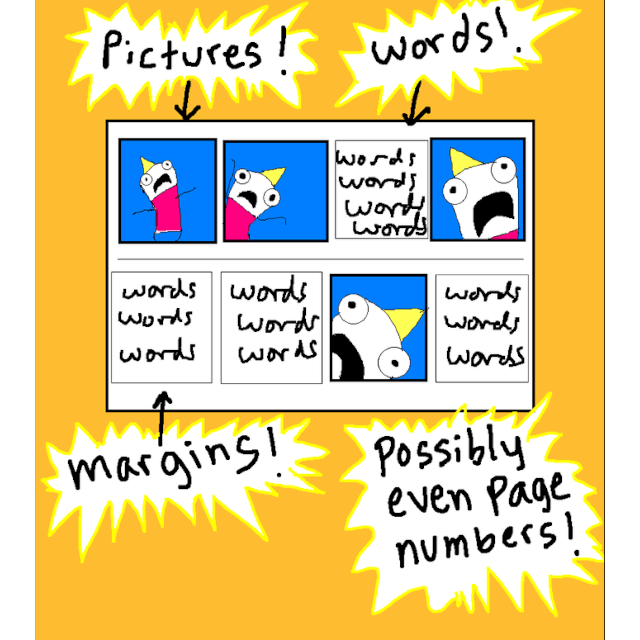 Pictures!
words!
words
words
words
words
words
words
words
words
words
words
words
words
words
margins!
Possibly
even Page
numbers!